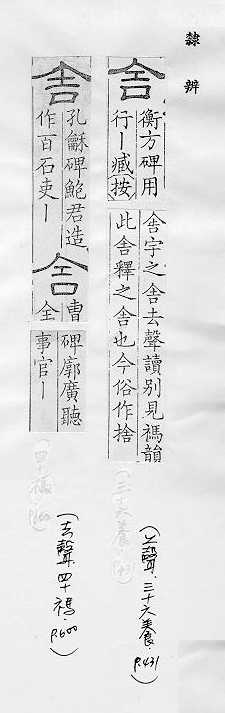 隸辨
舍
衡方碑用
行丨臧(按)
舍字之舍去聲讀別見禡韻
此舍釋之舍也今俗作捨
(上聲、三十六養、P.431)
舍
孔龢碑鮑君造
作百石吏丨
舍
曹
全
碑廓廣聽
事官丨
(去聲、四十禡、P.600)